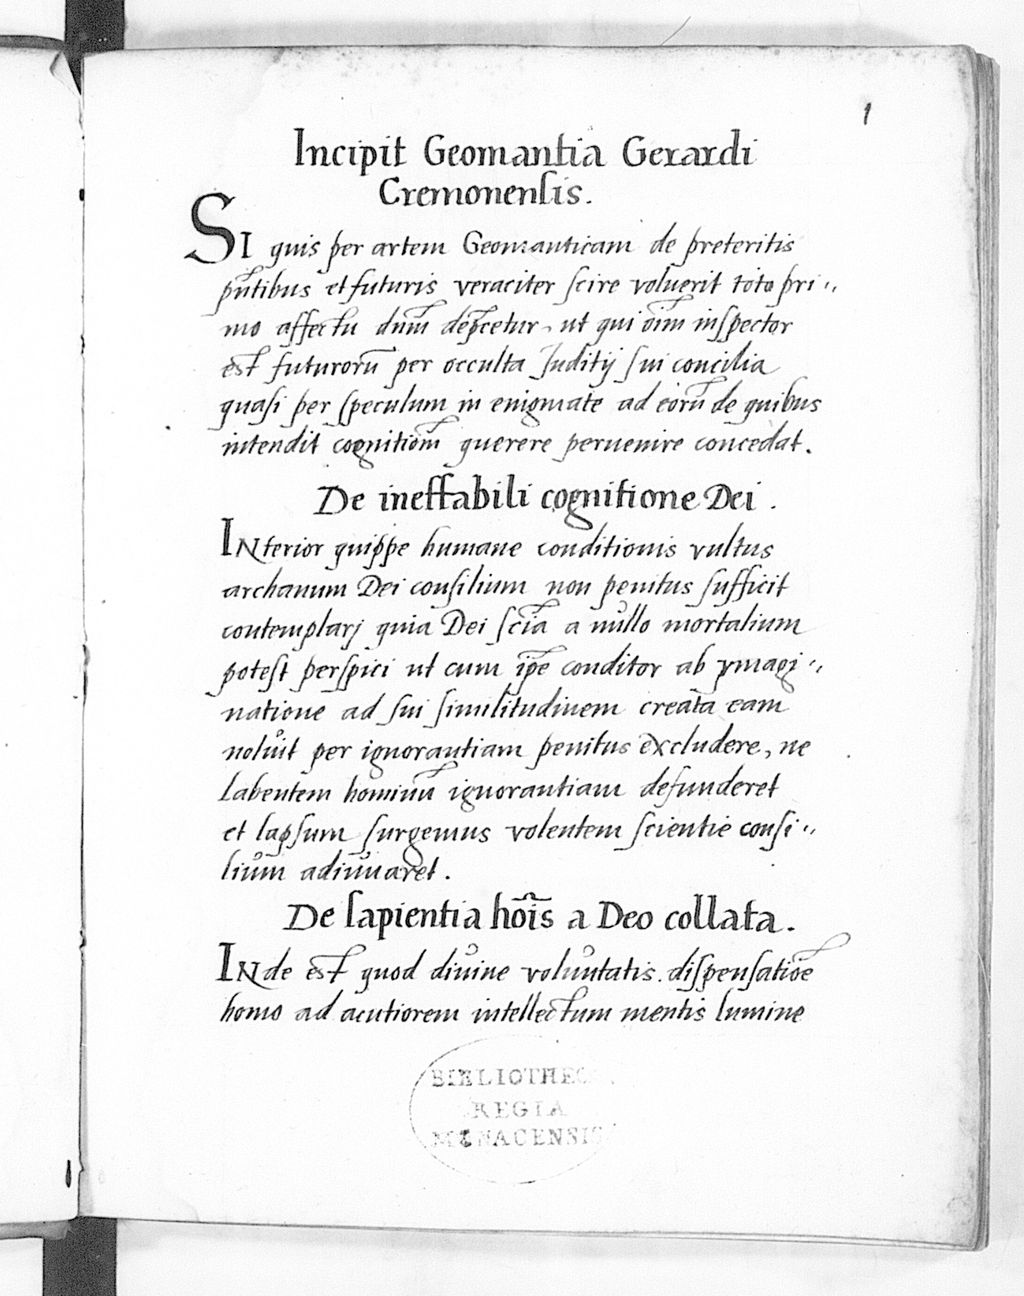 1
Incipit Geomantia Gerardi
Cremonensis.
SI quis per artem Geomanticam de preteritis
pn̄tibus et futuris veraciter scire voluerit toto pri-
mo affectu dnm̄ dep̄cetur, ut qui oim̄ inspector
est futurorū per occulta Juditij sui concilia
quasi per speculum in enigmate ad eorū de quibus
intendit cognitiom̄ querere pervenire concedat.
De ineffabili cognitione Dei.
INterior quippe humane conditionis vultus
archanum Dei consilium non penitus sufficit
contemplarj quia Dei scīa a nullo mortalium
potest perspici ut cum ip̄e conditor ab ymagi-
natione ad sui similitudinem creata eam
noluit per ignorantiam penitus excludere, ne
labentem hominū ignorantiam defunderet
et lapsum surgemus volentem scientie consi-
lium adiuvaret.
De sapientia hoīs a Deo collata.
INde est quod divine voluntatis dispensatiōe
homo ad acutiorem intellectum mentis lumine
BIBLIOTHECA
REGIA
MONACENSIS